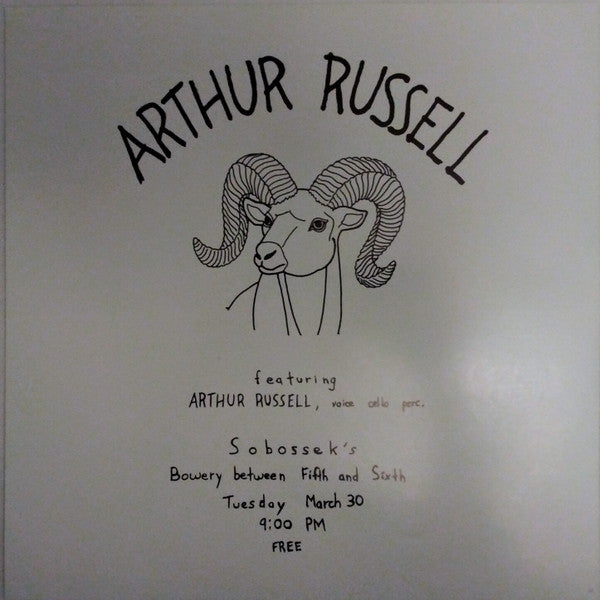 ARTHUR RUSSELL
featuring
ARTHUR RUSSELL, voice cello perc.
Sobossek's
Bowery between Fifth and Sixth
Tuesday March 30
9:00 PM
FREE